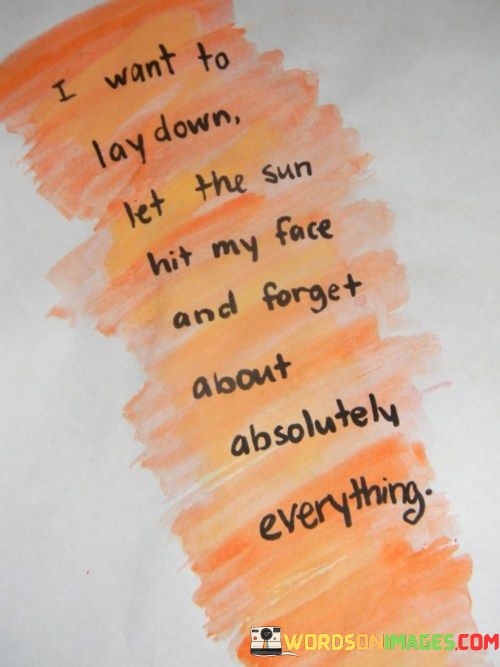 I want to
lay down,
let the sun
hit my face
and forget
about
absolutely
everything.
WORDSONIMAGES.COM